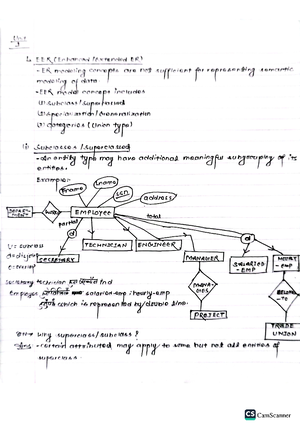 Unit
3
i) EER (Enhanced / Extended ER)
- ER modeling concepts are not sufficient for representing semantic
modeling of data.
- EER model concept includes
(i) Subclass / Superclass
(ii) Specialization / Generalization
(iii) Categories (Union type)
(ii) Subclasses / Superclasses
- An entity type may have additional meaningful subgrouping of its
entities.
Example:
Fname
Lname
SSN
address
Employee
partial
total
d
d
SECRETARY
TECHNICIAN
ENGINEER
MANAGER
SALARIED
-EMP
HOURLY
-EMP
MANAGES
BELONGS
-TO
PROJECT
TRADE
UNION
Secretary technician
Employee salaried-emp & hourly-emp
which is represented by double line.
Que: Why superclass/subclass?
Ans: - Certain attributes may apply to some but not all entities of
superclass.
CS CamScanner